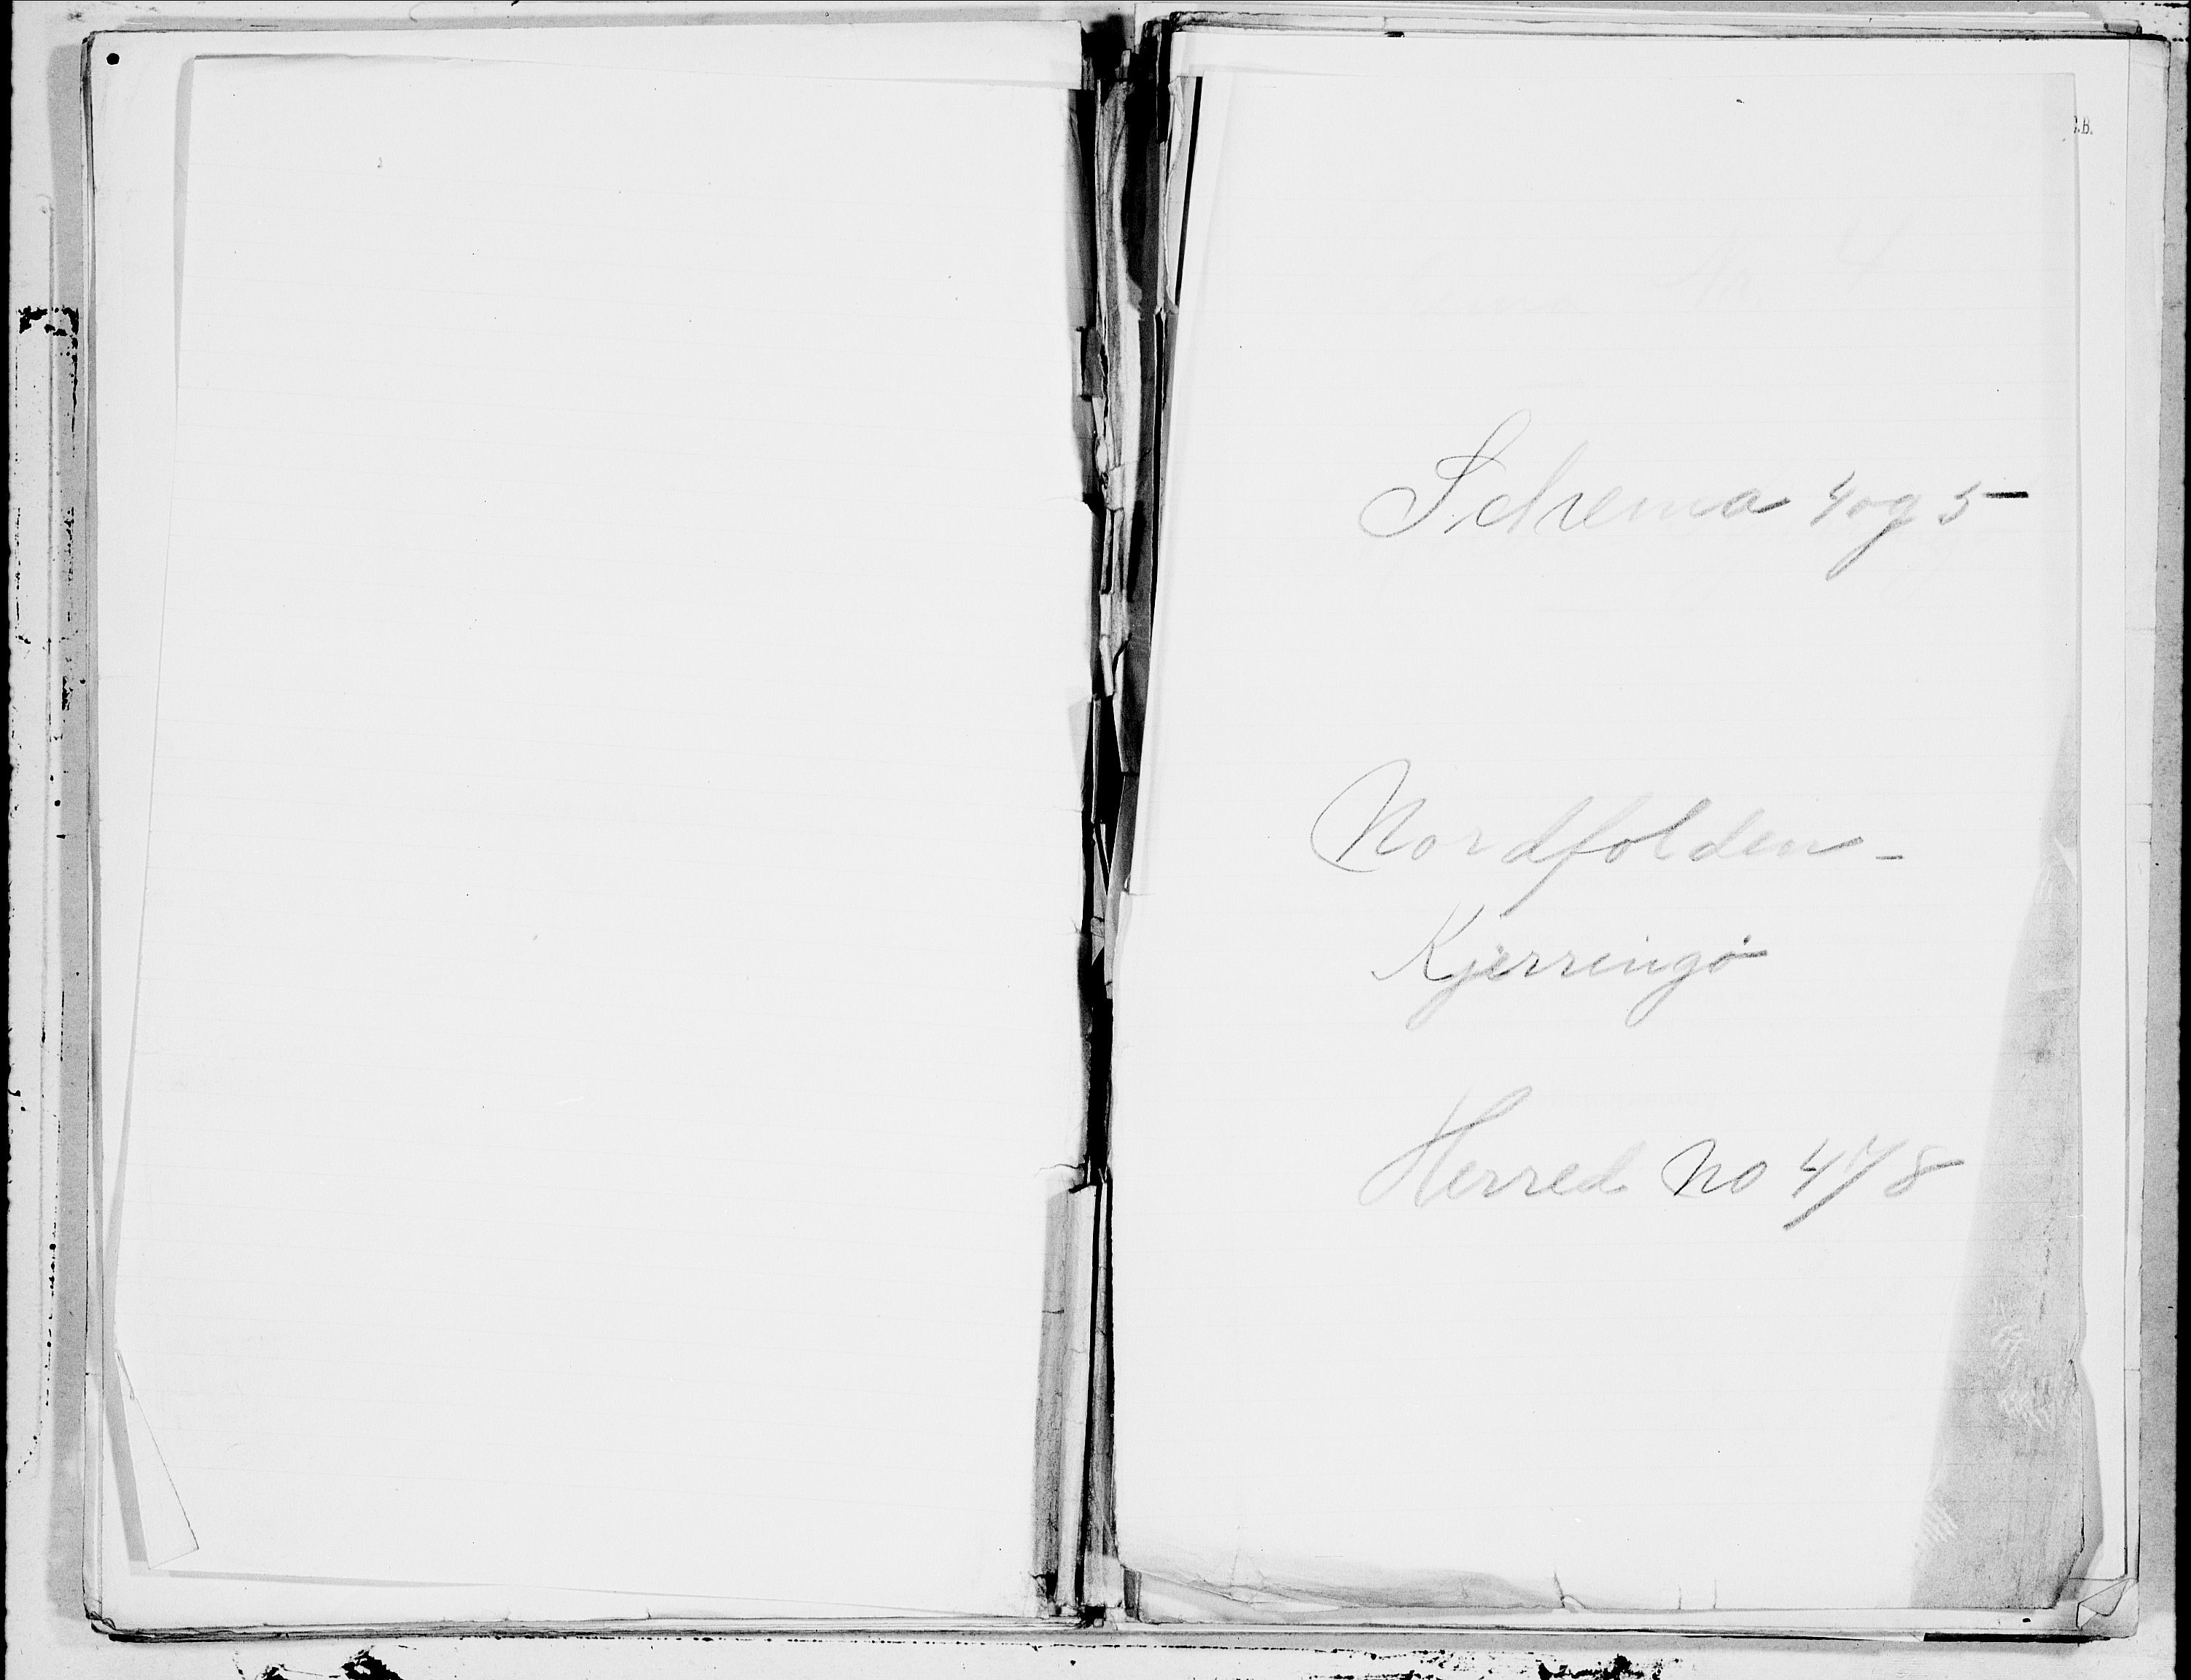 Schema 4 og 5
Nordfolden-
Kjerringø
Herred No 478